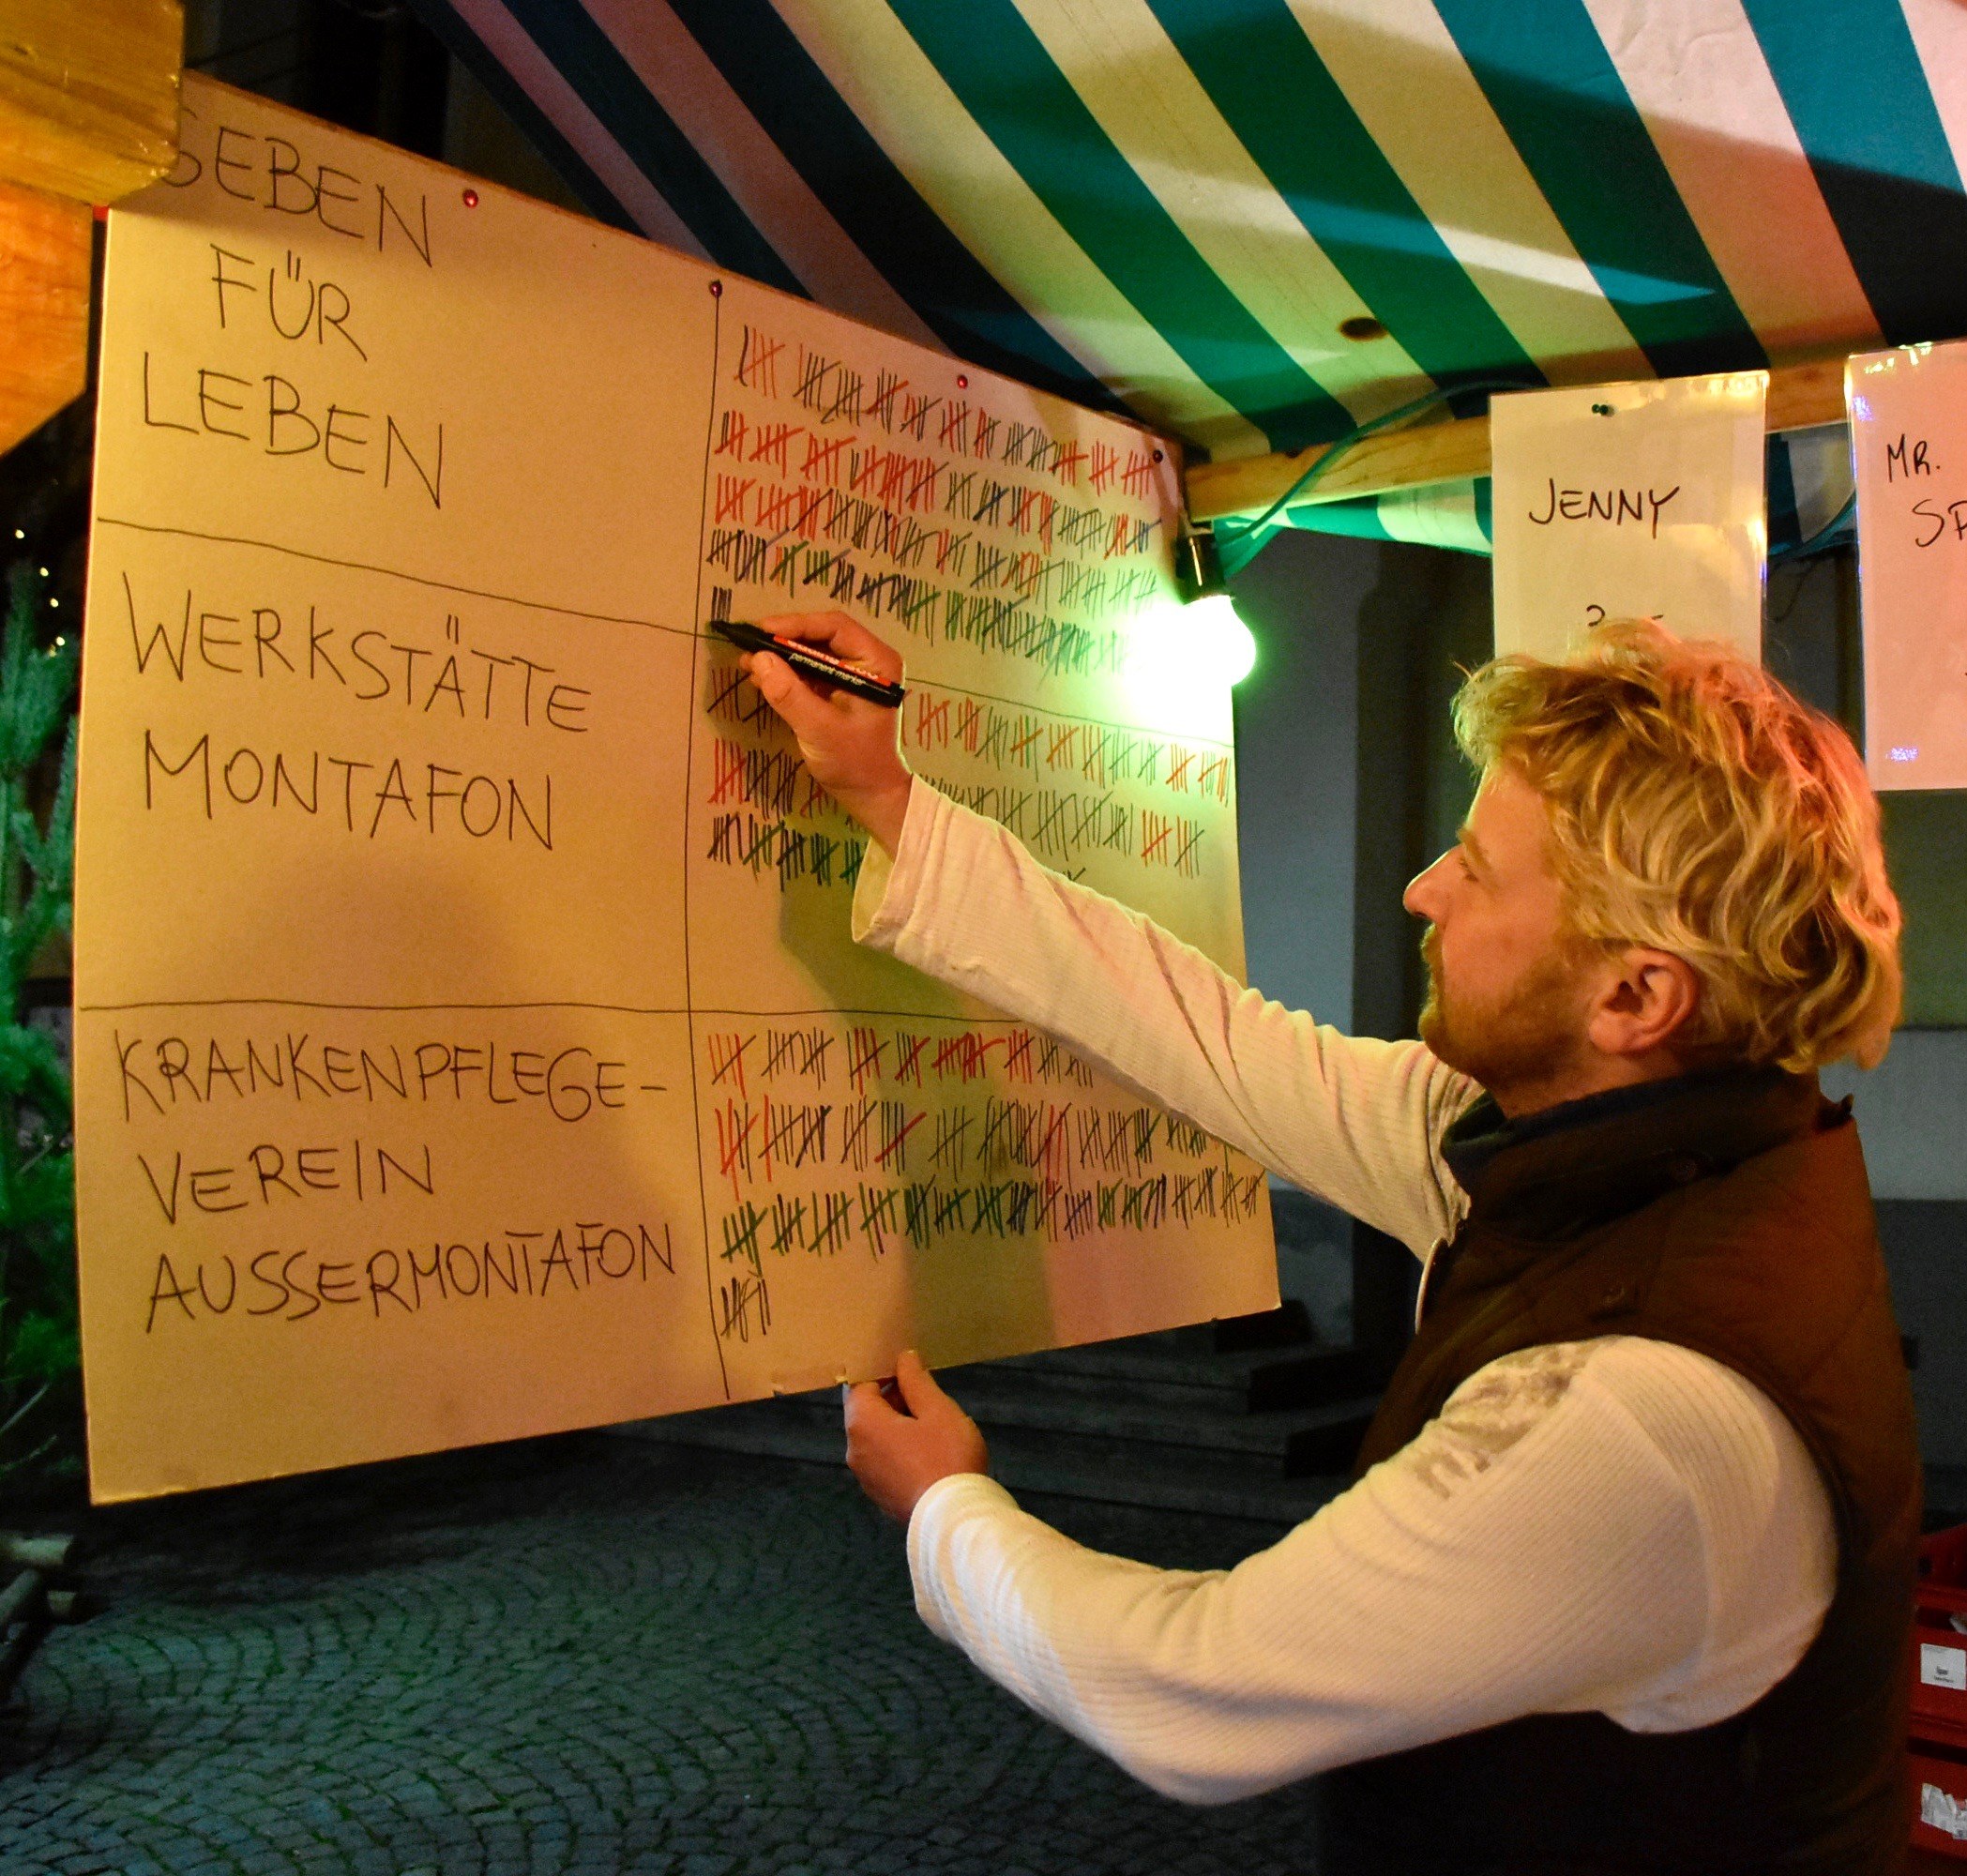 GEBEN
FÜR
LEBEN
WERKSTÄTTE
MONTAFON
KRANKENPFLEGE-
VEREIN
AUSSERMONTAFON
permanent marker
JENNY
MR.